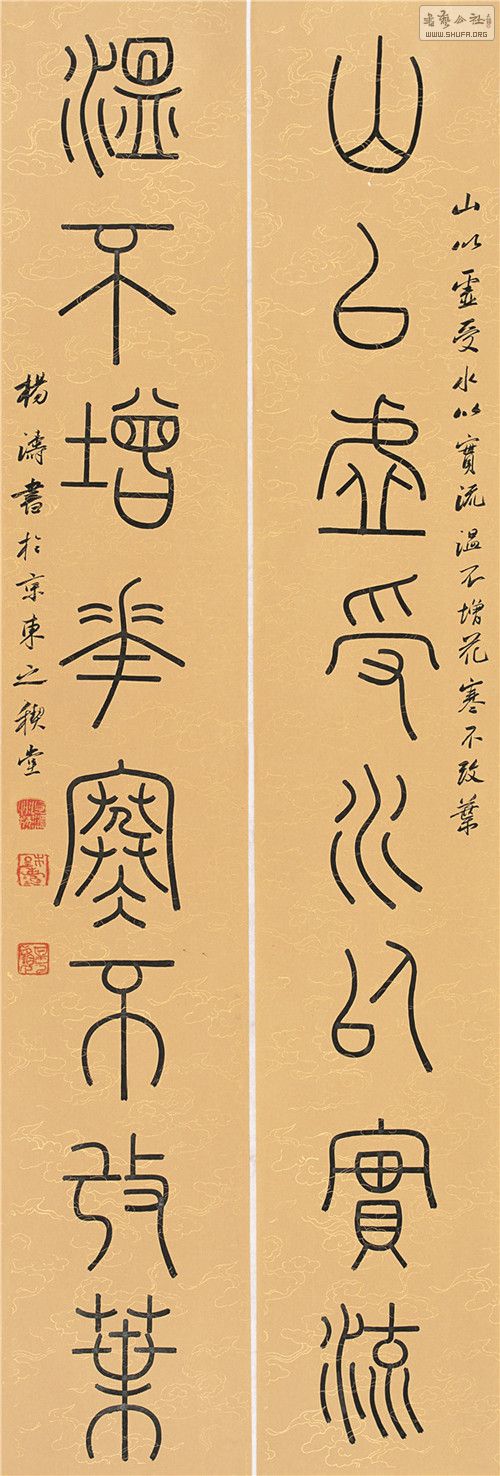 書藝公社
WWW.SHUFA.ORG
山以虛受水以實流溫不增花寒不改葉
山以虛受水以實流
溫不增華寒不改葉
楊濤書於京東之稧堂